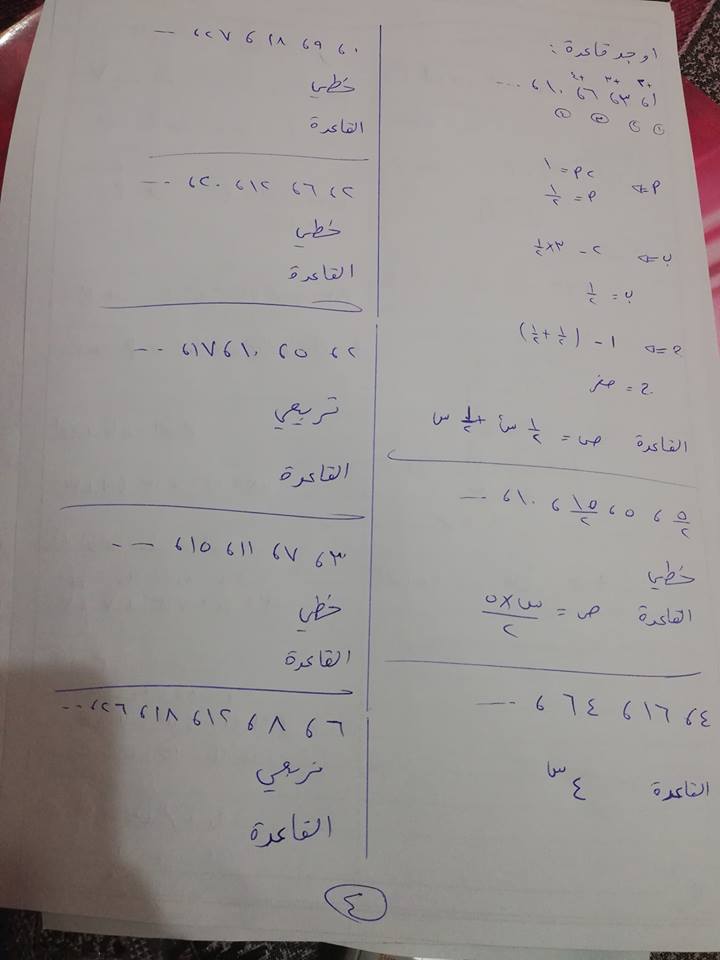 اوجد قاعدة :
+٢ +٣ +٤
١ ، ٣ ، ٦ ، ١٠ ، ...
١ ٢ ٣ ٤
٢م = ١
م = ١/٢
ب <= ٢ - ٣×١/٢
ب = ١/٢
ج <= ١ - (١/٢ + ١/٢)
ج = صفر
القاعدة ص = ١/٢ س٢ + ١/٢ س
٥/٢ ، ٥ ، ١٥/٢ ، ١٠ ، ...
خطي
القاعدة ص = س×٥/٢
٤ ، ١٦ ، ٦٤ ، ...
القاعدة ٤س
٠ ، ٩ ، ١٨ ، ٢٧ ، ...
خطي
القاعدة
٢ ، ٦ ، ١٢ ، ٢٠ ، ...
خطي
القاعدة
٢ ، ٥ ، ١٠ ، ١٧ ، ...
تربيعي
القاعدة
٣ ، ٧ ، ١١ ، ١٥ ، ...
خطي
القاعدة
٦ ، ٨ ، ١٢ ، ١٨ ، ٢٦ ، ...
تربيعي
القاعدة
٤